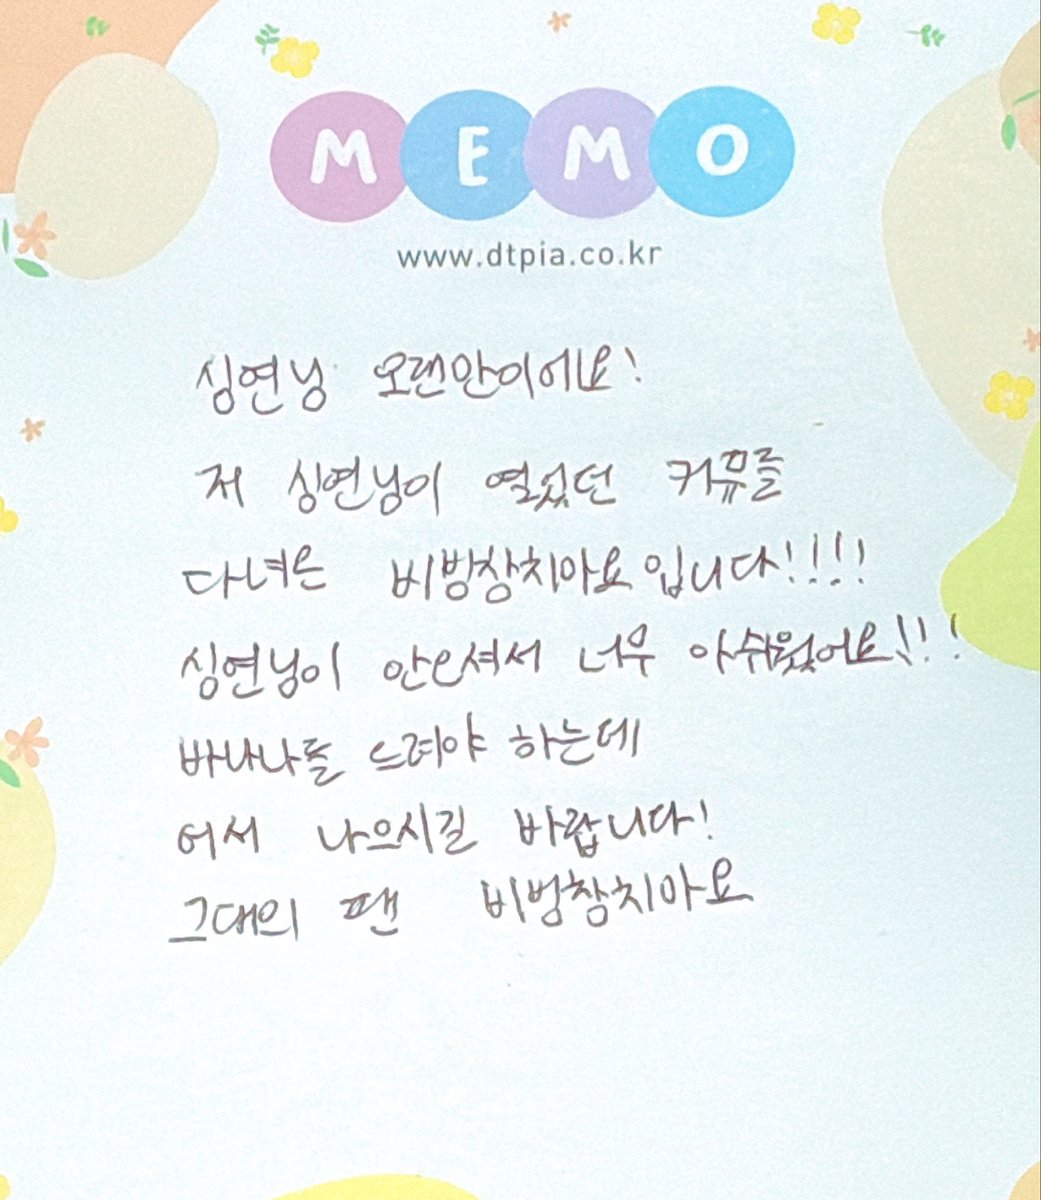 MEMO
www.dtpia.co.kr
싱연닝 오랜만이에요!
저 싱연닝이 열었던 커뮤를
다녀온 비빙참치마요입니다!!!!
싱연닝이 안오셔서 너무 아쉬웠어요!!!
바나나를 드려야 하는데
어서 나으시길 바랍니다!
그대의 팬 비빙참치마요